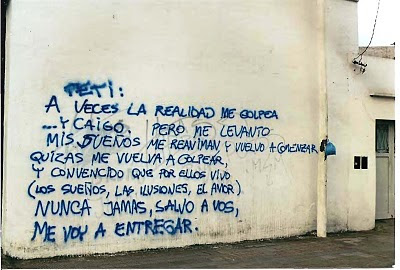 PETI:
A VECES LA REALIDAD ME GOLPEA
...Y CAIGO. PERO ME LEVANTO
MIS SUEÑOS ME REANIMAN, Y VUELVO A COMENZAR
QUIZAS ME VUELVA A GOLPEAR,
Y CONVENCIDO QUE POR ELLOS VIVO
(LOS SUEÑOS, LAS ILUSIONES, EL AMOR)
NUNCA JAMAS, SALVO A VOS,
ME VOY A ENTREGAR.